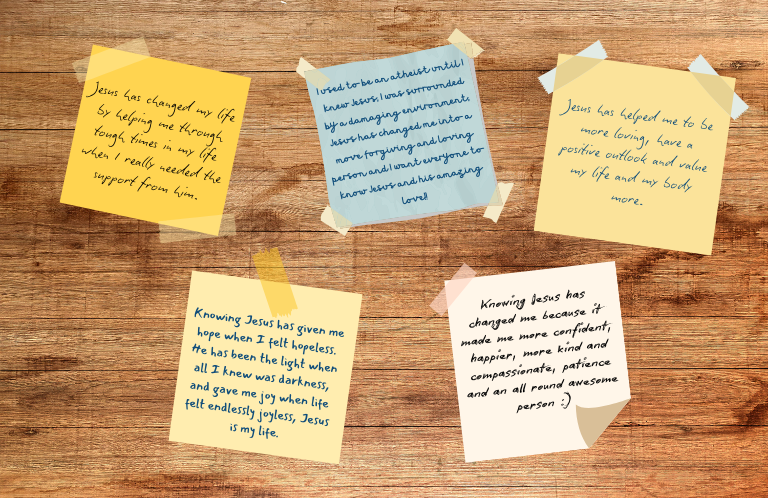 Jesus has changed my life
by helping me through
tough times in my life
when I really needed the
support from him.
I used to be an atheist until I
knew Jesus, I was surrounded
by a damaging environment.
Jesus has changed me into a
move forgiving and loving
person and I want everyone to
know Jesus and his amazing
love!!
Jesus has helped me to be
more loving, have a
positive outlook and value
my life and my body
more.
Knowing Jesus has given me
hope when I felt hopeless.
He has been the light when
all I knew was darkness,
and gave me joy when life
felt endlessly joyless, Jesus
is my life.
Knowing Jesus has
changed me because it
made me more confident,
happier, more kind and
compassionate, patience
and an all round awesome
person :)